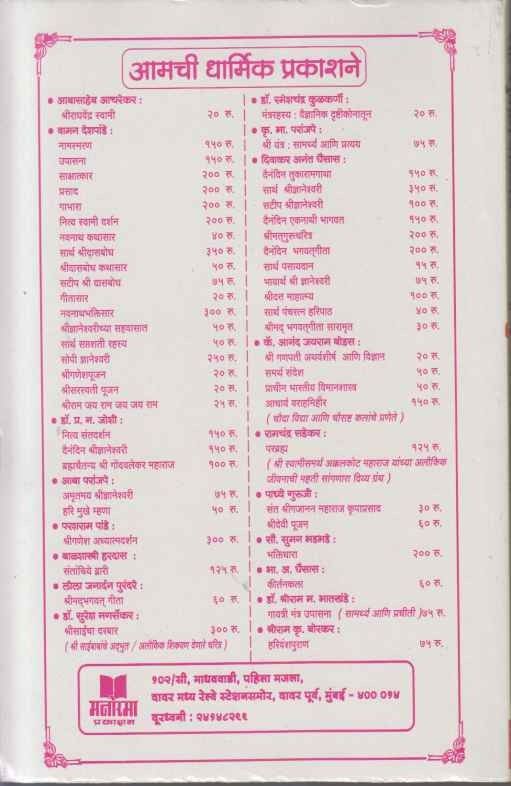 आमची धार्मिक प्रकाशने
• आबासाहेब आचरेकर :
श्रीराघवेंद्र स्वामी २० रु.
• वामन देशपांडे :
नामस्मरण १५० रु.
उपासना १५० रु.
साक्षात्कार २०० रु.
प्रसाद २०० रु.
गाभारा २०० रु.
नित्य स्वामी दर्शन २०० रु.
नवनाथ कथासार ४० रु.
सार्थ श्रीदासबोध ३५० रु.
श्रीदासबोध कथासार ५० रु.
सटीप श्री दासबोध ७५ रु.
गीतासार २० रु.
नवनाथभक्तिसार ३०० रु.
श्रीज्ञानेश्वरीच्या सहवासात ५० रु.
सार्थ सप्तशती रहस्य ५० रु.
सोपी ज्ञानेश्वरी २५० रु.
श्रीगणेशपूजन २० रु.
श्रीसरस्वती पूजन २० रु.
श्रीराम जय राम जय जय राम २५ रु.
• डॉ. प्र. न. जोशी :
नित्य संतदर्शन १५० रु.
दैनंदिन श्रीज्ञानेश्वरी १५० रु.
ब्रह्मचैतन्य श्री गोंदवलेकर महाराज १०० रु.
• आबा परांजपे :
अमृतमय श्रीज्ञानेश्वरी ७५ रु.
हरि मुखे म्हणा ५० रु.
• परशराम पांडे :
श्रीगणेश अध्यात्मदर्शन ३०० रु.
• बाळशास्त्री हरदास :
संतांचिये द्वारी १२५ रु.
• लीला जनार्दन पुरंदरे :
श्रीमद्‌भगवत्‌ गीता ६० रु.
• डॉ. सुरेश मणर्सेकर :
श्रीसाईंचा दरबार ३०० रु.
( श्री साईबाबांचे अद्‌भुत / अलौकिक शिकवण देणारे चरित्र )
• डॉ. रमेशचंद्र कुळकर्णी :
मंत्ररहस्य : वैज्ञानिक दृष्टीकोनातून २० रु.
• कृ. भा. परांजपे :
श्री यंत्र : सामर्थ्य आणि प्रत्यय ७५ रु.
• दिवाकर अनंत घैसास :
दैनंदिन तुकारामगाथा १५० रु.
सार्थ श्रीज्ञानेश्वरी ३५० रु.
सटीप श्रीज्ञानेश्वरी १०० रु.
दैनंदिन एकनाथी भागवत १५० रु.
श्रीमत्‌गुरुचरित्र २०० रु.
दैनंदिन भगवत्‌गीता २०० रु.
सार्थ पसायदान १५ रु.
भावार्थ श्री ज्ञानेश्वरी ७५ रु.
श्रीदत्त माहात्म्य १०० रु.
सार्थ पंचरत्न हरिपाठ ४० रु.
श्रीमद्‌ भगवत्‌गीता सारामृत ३० रु.
• कॅ. आनंद जयराम बोडस :
श्री गणपती अथर्वशीर्ष आणि विज्ञान २० रु.
समर्थ संदेश ५० रु.
प्राचीन भारतीय विमानशास्त्र ५० रु.
आचार्य वराहमिहीर १५० रु.
( चौदा विद्या आणि चौसष्ठ कलांचे प्रणेते )
• रामचंद्र सडेकर :
परब्रह्म १२५ रु.
( श्री स्वामीसमर्थ अक्कलकोट महाराज यांच्या अलौकिक
जीवनाची महती सांगणारा दिव्य ग्रंथ )
• पाध्ये गुरुजी :
संत श्रीगजानन महाराज कृपाप्रसाद ३० रु.
श्रीदेवी पूजन ६० रु.
• सौ. सुमन भडभडे :
भक्तिधारा २०० रु.
• भा. अ. घैसास :
कीर्तनकला ६० रु.
• डॉ. श्रीराम म. भातखंडे :
गायत्री मंत्र उपासना ( सामर्थ्य आणि प्रचीती )७५ रु.
• श्रीराम कृ. बोरकर :
हरिवंशपुराण ७५ रु.
मनोरमा
प्रकाशन
१०२/सी, माधववाडी, पहिला मजला,
दादर मध्य रेल्वे स्टेशनसमोर, दादर पूर्व, मुंबई - ४०० ०१४
दूरध्वनी : २४१४८२९६